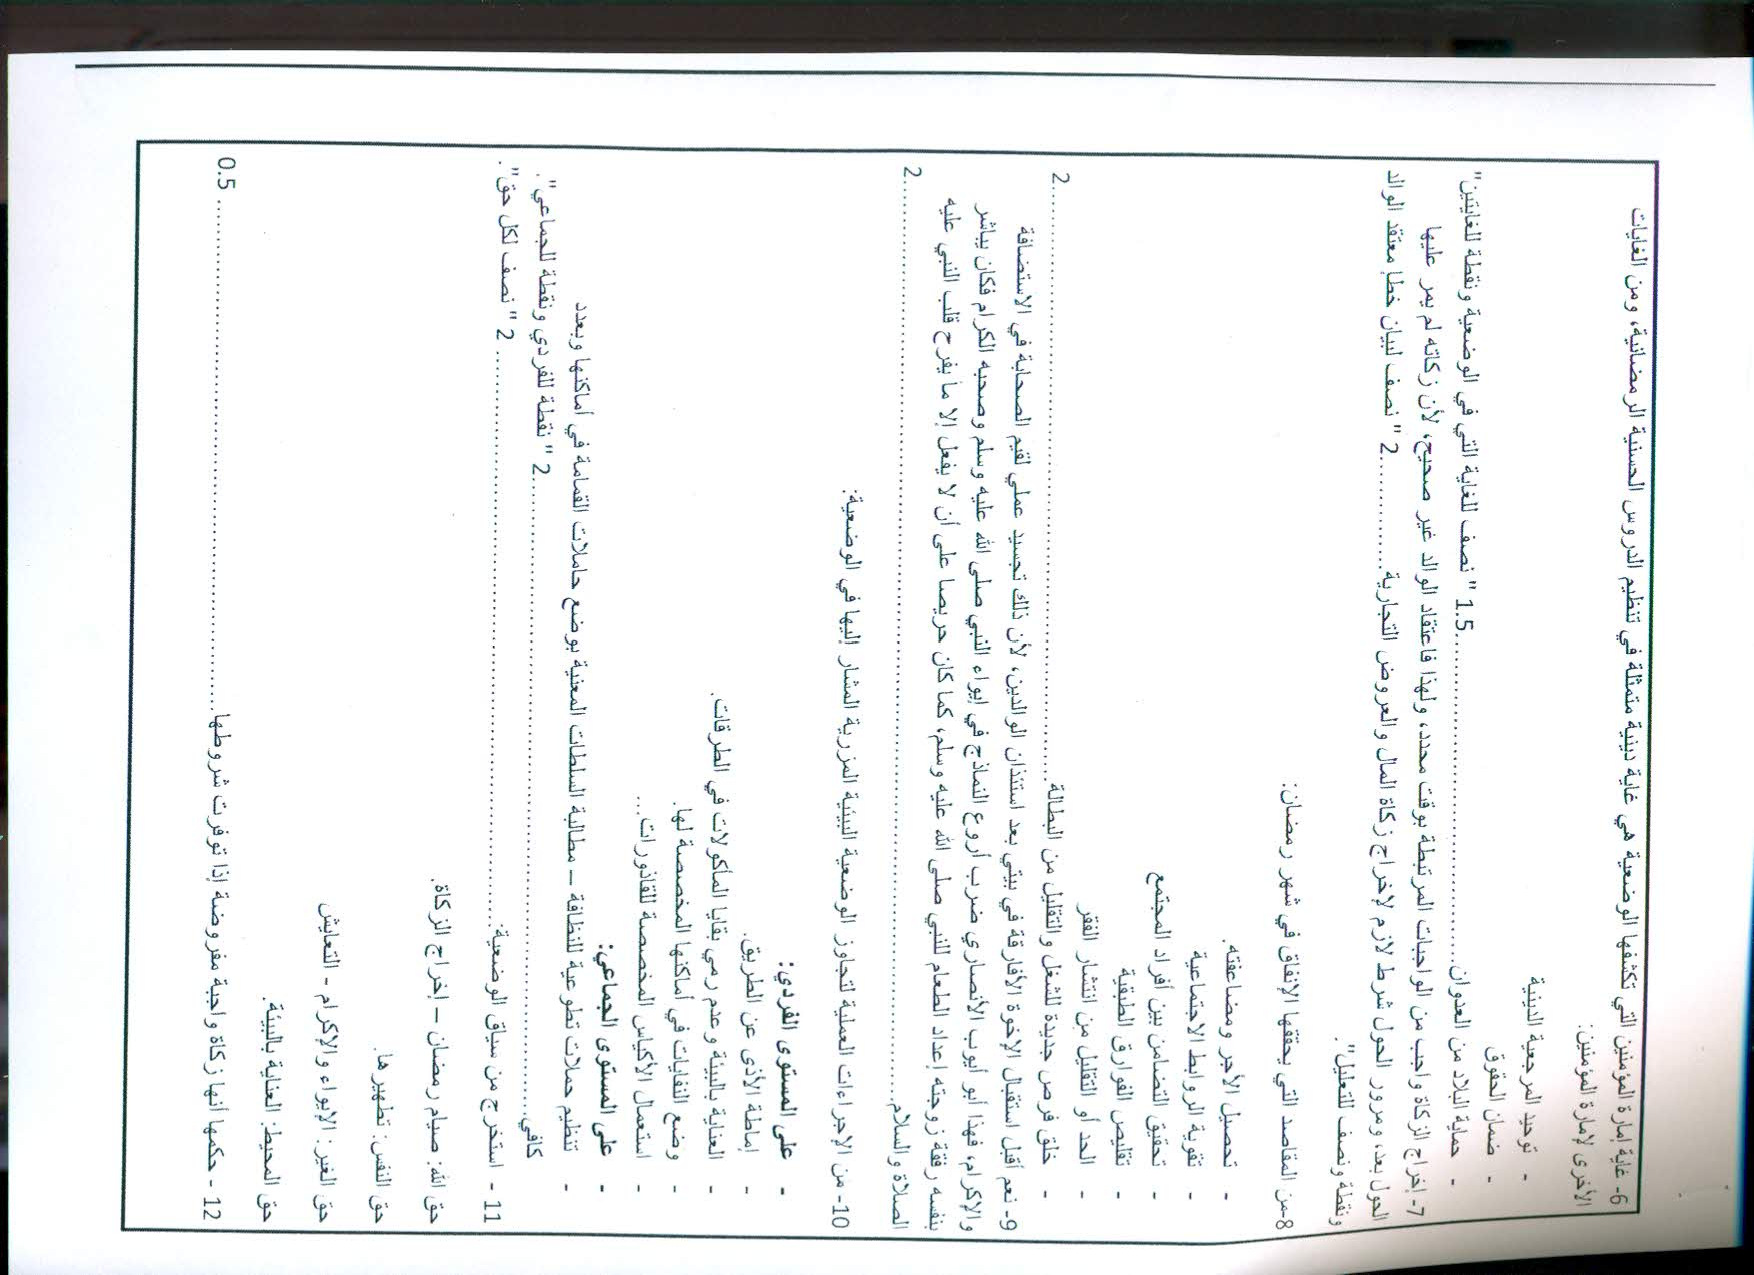 6- غاية إمارة المؤمنين التي تكشفها الوضعية هي غاية دينية متمثلة في تنظيم الدروس الحسنية الرمضانية، ومن الغايات
الأخرى لإمارة المؤمنين:
- توحيد المرجعية الدينية
- ضمان الحقوق
- حماية البلاد من العدوان..............................1.5 " نصف للغاية التي في الوضعية ونقطة للغايتين"
7- إخراج الزكاة واجب من الواجبات المرتبطة بوقت محدد، ولهذا فاعتقاد الوالد غير صحيح، لأن زكاته لم يمر عليها
الحول بعد، ومرور الحول شرط لازم لإخراج زكاة المال والعروض التجارية............2 " نصف لبيان خطإ معتقد الوالد
ونقطة ونصف للتعليل".
8-من المقاصد التي يحققها الإنفاق في شهر رمضان:
- تحصيل الأجر ومضاعفته.
- تقوية الروابط الاجتماعية
- تحقيق التضامن بين أفراد المجتمع
- تقليص الفوارق الطبقية
- الحد أو التقليل من انتشار الفقر
- خلق فرص جديدة للشغل والتقليل من البطالة..............................2
9- نعم أقبل استقبال الإخوة الأفارقة في بيتي بعد استئذان الوالدين، لأن ذلك تجسيد عملي لقيم الصحابة في الاستضافة
والإكرام، فهذا أبو أيوب الأنصاري ضرب أروع النماذج في إيواء النبي صلى الله عليه وسلم وصحبه الكرام فكان يباشر
بنفسه رفقة زوجته إعداد الطعام للنبي صلى الله عليه وسلم، كما كان حريصا على أن لا يفعل إلا ما يفرح قلب النبي عليه
الصلاة والسلام..............................2
10- من الإجراءات العملية لتجاوز الوضعية البيئية المزرية المشار إليها في الوضعية:
- على المستوى الفردي:
- إماطة الأذى عن الطريق.
- العناية بالبيئة وعدم رمي بقايا المأكولات في الطرقات.
- وضع النفايات في أماكنها المخصصة لها.
- استعمال الأكياس المخصصة للقاذورات...
- على المستوى الجماعي:
- تنظيم حملات تطوعية للنظافة – مطالبة السلطات المعنية بوضع حاملات القمامة في أماكنها وبعدد
كافي..............................2 " نقطة للفردي ونقطة للجماعي".
11 - استخرج من سياق الوضعية:..............................2 " نصف لكل حق".
حق الله: صيام رمضان – إخراج الزكاة.
حق النفس: تطهيرها.
حق الغير: الإيواء والإكرام - التعايش
حق المحيط: العناية بالبيئة.
12 - حكمها أنها زكاة واجبة مفروضة إذا توفرت شروطها..............................0.5